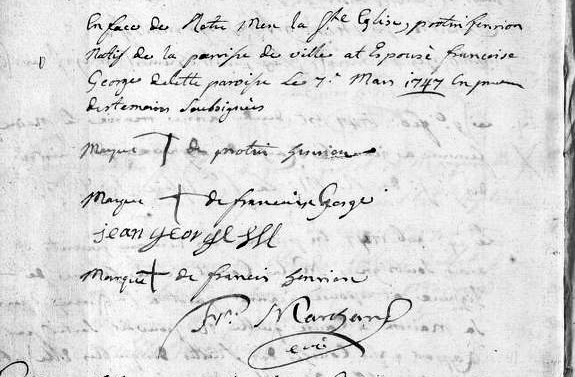 En face de Notre Mere la Ste Eglise, protin henrion
Natif de la paroisse de ville at Espousé francoise
George de cette paroisse Le 7.e Mars 1747 En
des temoins Soubsignés
Marque de protin henrion
Marque de francoise George
jean george
Marque de francis henrion
Fr. Marchand
curé